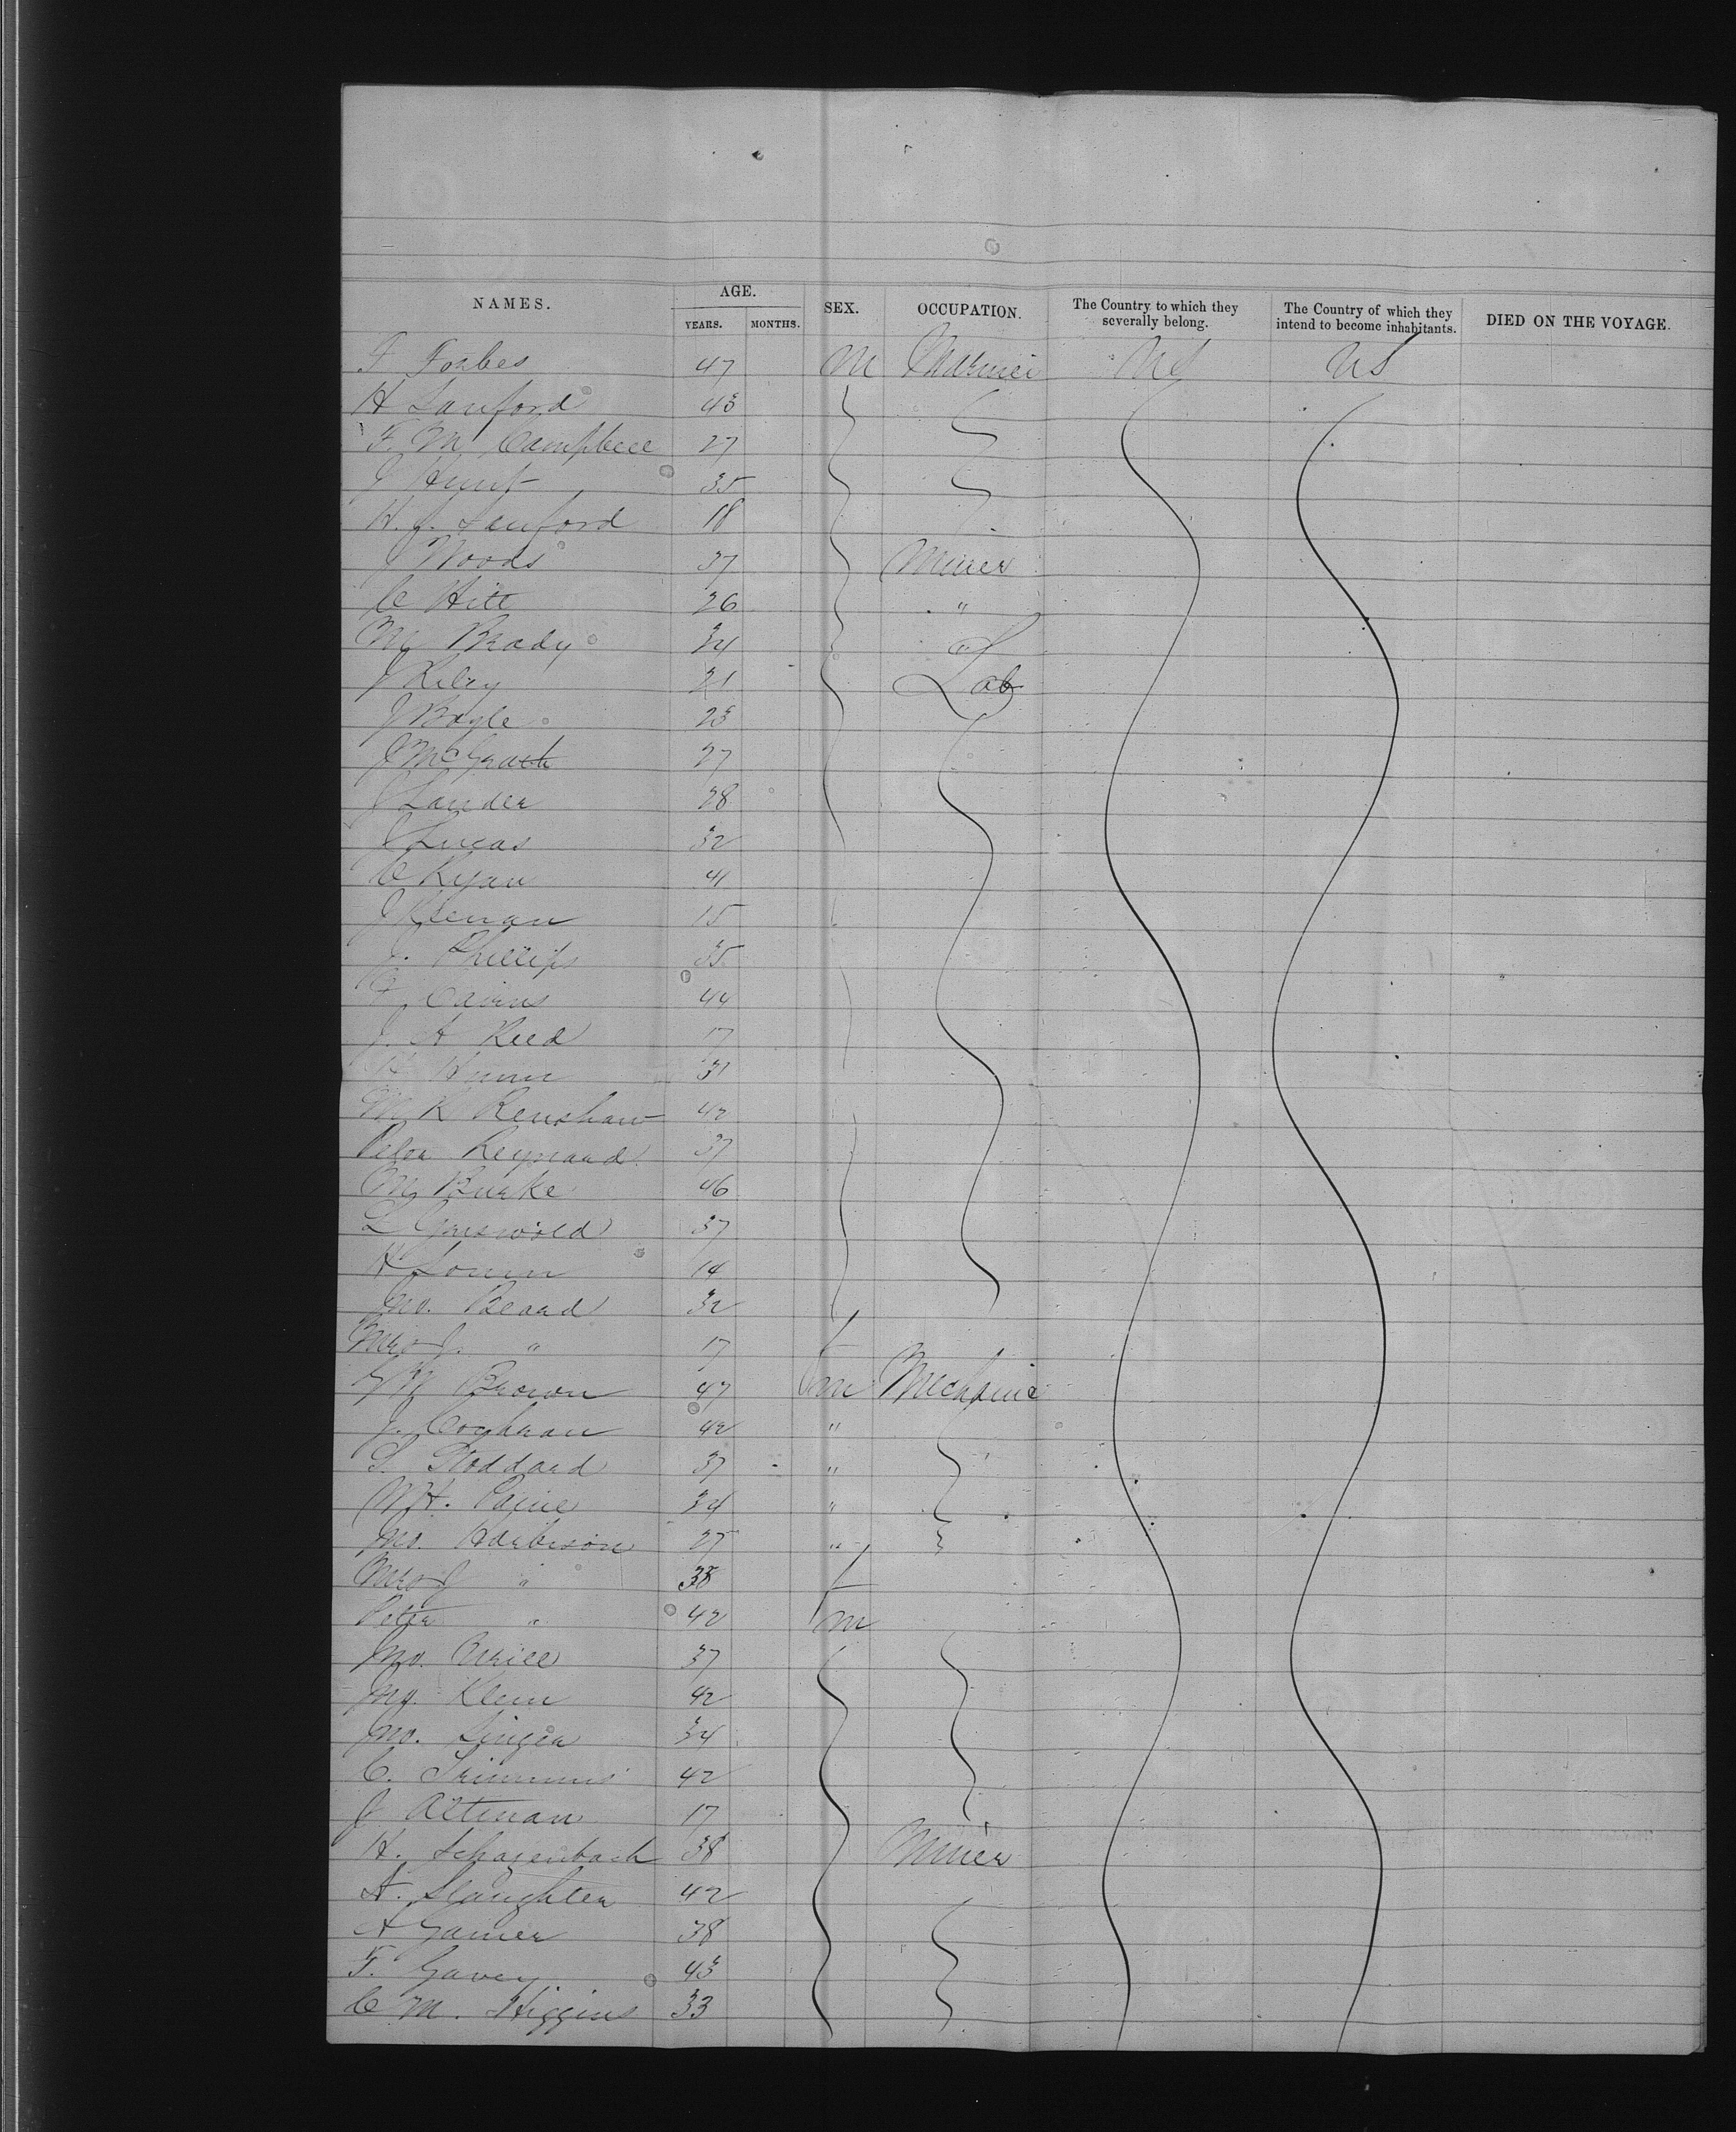 NAMES. AGE. SEX. OCCUPATION. The Country to which they severally belong. The Country of which they intend to become inhabitants. DIED ON THE VOYAGE.
YEARS. MONTHS.
F Forbes 47 M US US
H Sanford 43
F. M. Campbell 27
J Hunt 35
H. J. Sanford 18
J Woods 37 Miner
C Hill 26 "
Brady 34 "
J Riley 21 Lab
J Boyle 23
J McGrath 27
J Lander 28
J Lucas 32
C Ryan 41
J Keenan 15
J. Phillips 35
Cairns 44
J. A Reed 17
31
M R Renshaw 42
Peter Reynaud 37
M Burke 46
L Griswold 37
H 14
Jno. Beard 32
Mrs J. " 17 F
Brown 47 m Mechanic
J. Coghman 42 "
S. Stoddard 37 "
Paine 34 "
Jno. Harbison 25 "
Mrs J " 38 F
Peter " 42 m
Jno. 37
Klein 42
Jno. Singer 34
C. 42
J Altman 17
H. Schazenbach 38 Miner
A. Slaughter 42
A 38
F. Gavey 43
C M. Higgins 33